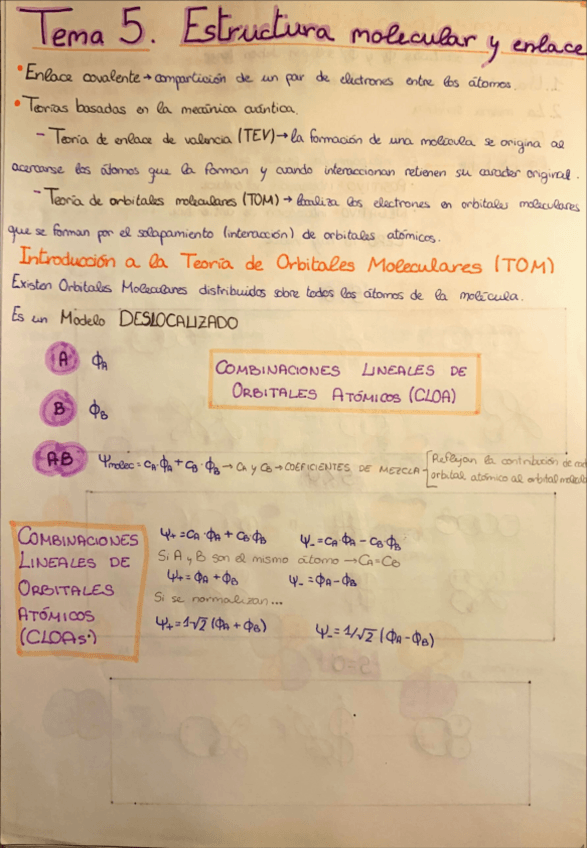 Tema 5. Estructura molecular y enlace
• Enlace covalente → compartición de un par de electrones entre los átomos.
• Teorías basadas en la mecánica cuántica.
- Teoría de enlace de valencia (TEV) → la formación de una molécula se origina al
acercarse los átomos que la forman y cuando interaccionan retienen su caracter original.
- Teoría de orbitales moleculares (TOM) → localiza los electrones en orbitales moleculares
que se forman por el solapamiento (interacción) de orbitales atómicos.
Introducción a la Teoría de Orbitales Moleculares (TOM)
Existen Orbitales Moleculares distribuidos sobre todos los átomos de la molécula.
Es un Modelo DESLOCALIZADO
A ϕA
COMBINACIONES LINEALES DE
ORBITALES ATÓMICOS (CLOA)
B ϕB
AB Ψmolec = cA·ϕA + cB·ϕB → cA y cB → COEFICIENTES DE MEZCLA
Reflejan la contribución de
orbital atómico al orbital
COMBINACIONES
LINEALES DE
ORBITALES
ATÓMICOS
(CLOAs')
Ψ+ = CA·ϕA + CB·ϕB Ψ- = CA·ϕA - CB·ϕB
Si A y B son el mismo átomo → CA=CB
Ψ+ = ϕA + ϕB Ψ- = ϕA - ϕB
Si se normalizan...
Ψ+ = 1√2 (ϕA + ϕB) Ψ- = 1/√2 (ϕA - ϕB)